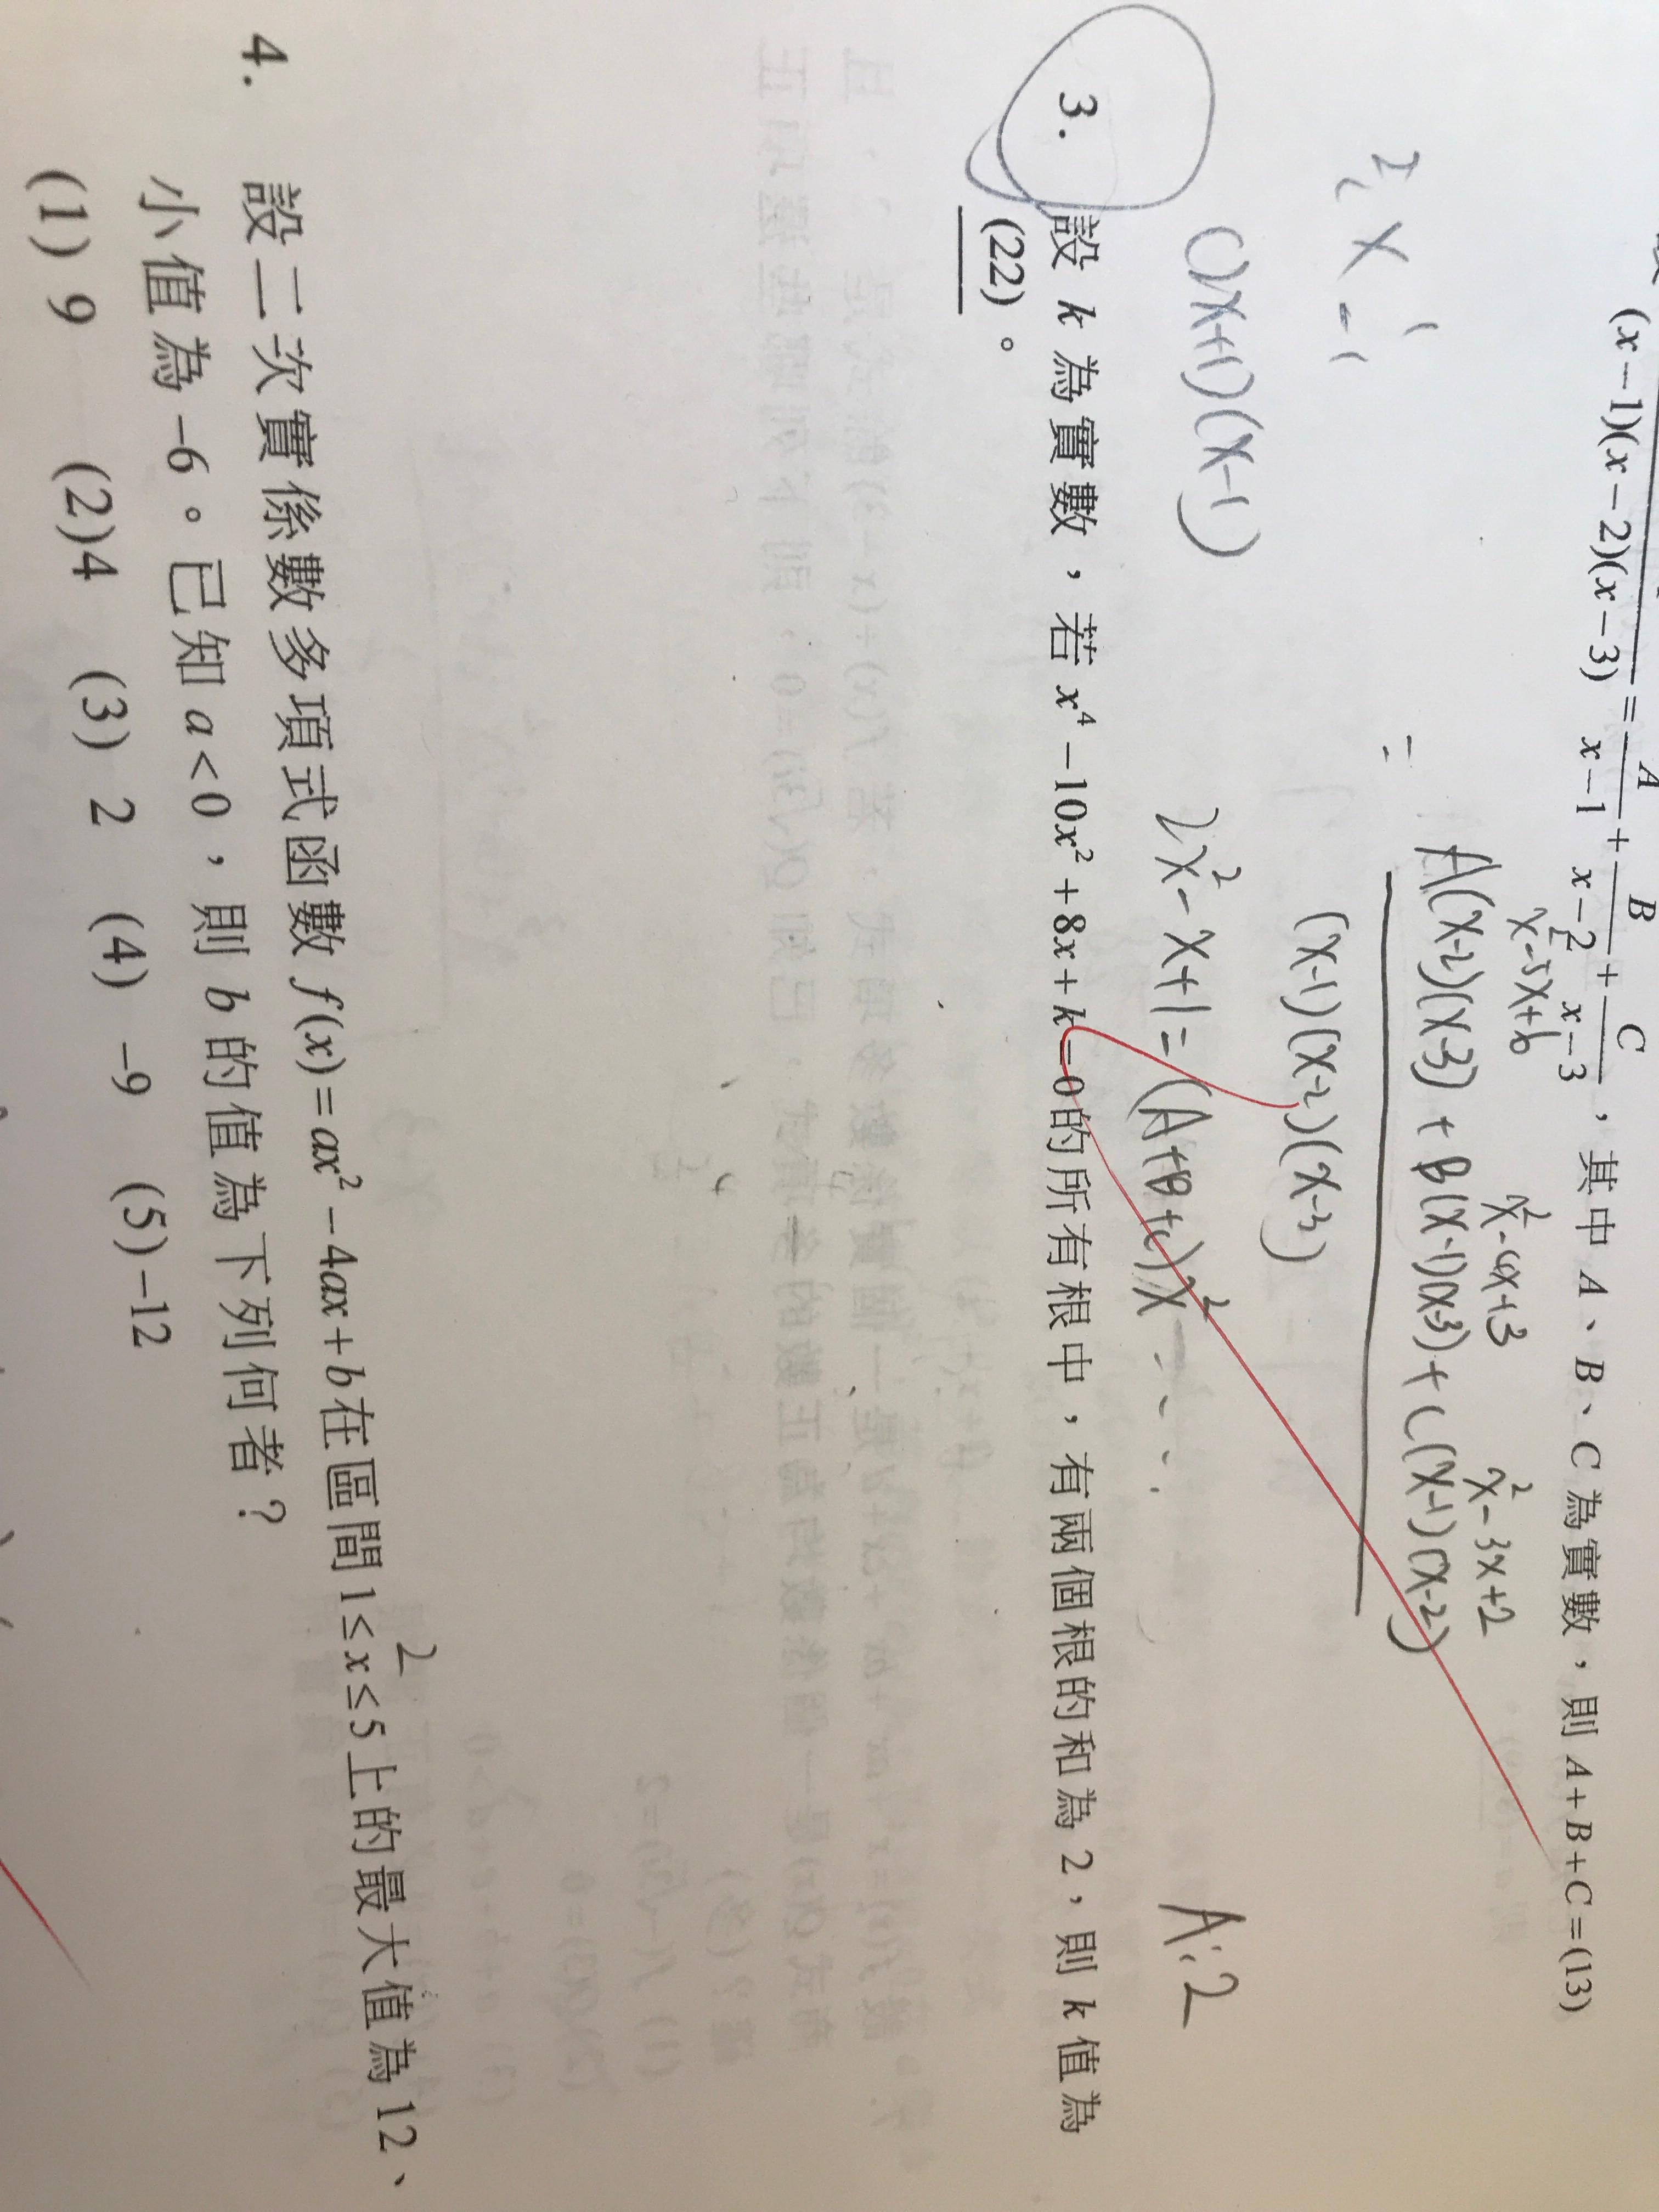 (x-1)(x-2)(x-3) = A/(x-1) + B/(x-2) + C/(x-3) ，其中 A、B、C 為實數，則 A+B+C=(13)
x²-5x+6 x²-4x+3 x²-3x+2
= A(x-2)(x-3) + B(x-1)(x-3) + C(x-1)(x-2)
(x-1)(x-2)(x-3)
2x²-x+1=(A+B+C)x² - - - .
A:2
3. 設 k 為實數，若 x⁴-10x²+8x+k=0 的所有根中，有兩個根的和為 2，則 k 值為
(22)。
4. 設二次實係數多項式函數 f(x)=ax²-4ax+b 在區間 1≤x≤5 上的最大值為 12、
2
小值為 -6。已知 a<0，則 b 的值為下列何者？
(1) 9 (2)4 (3) 2 (4) -9 (5)-12